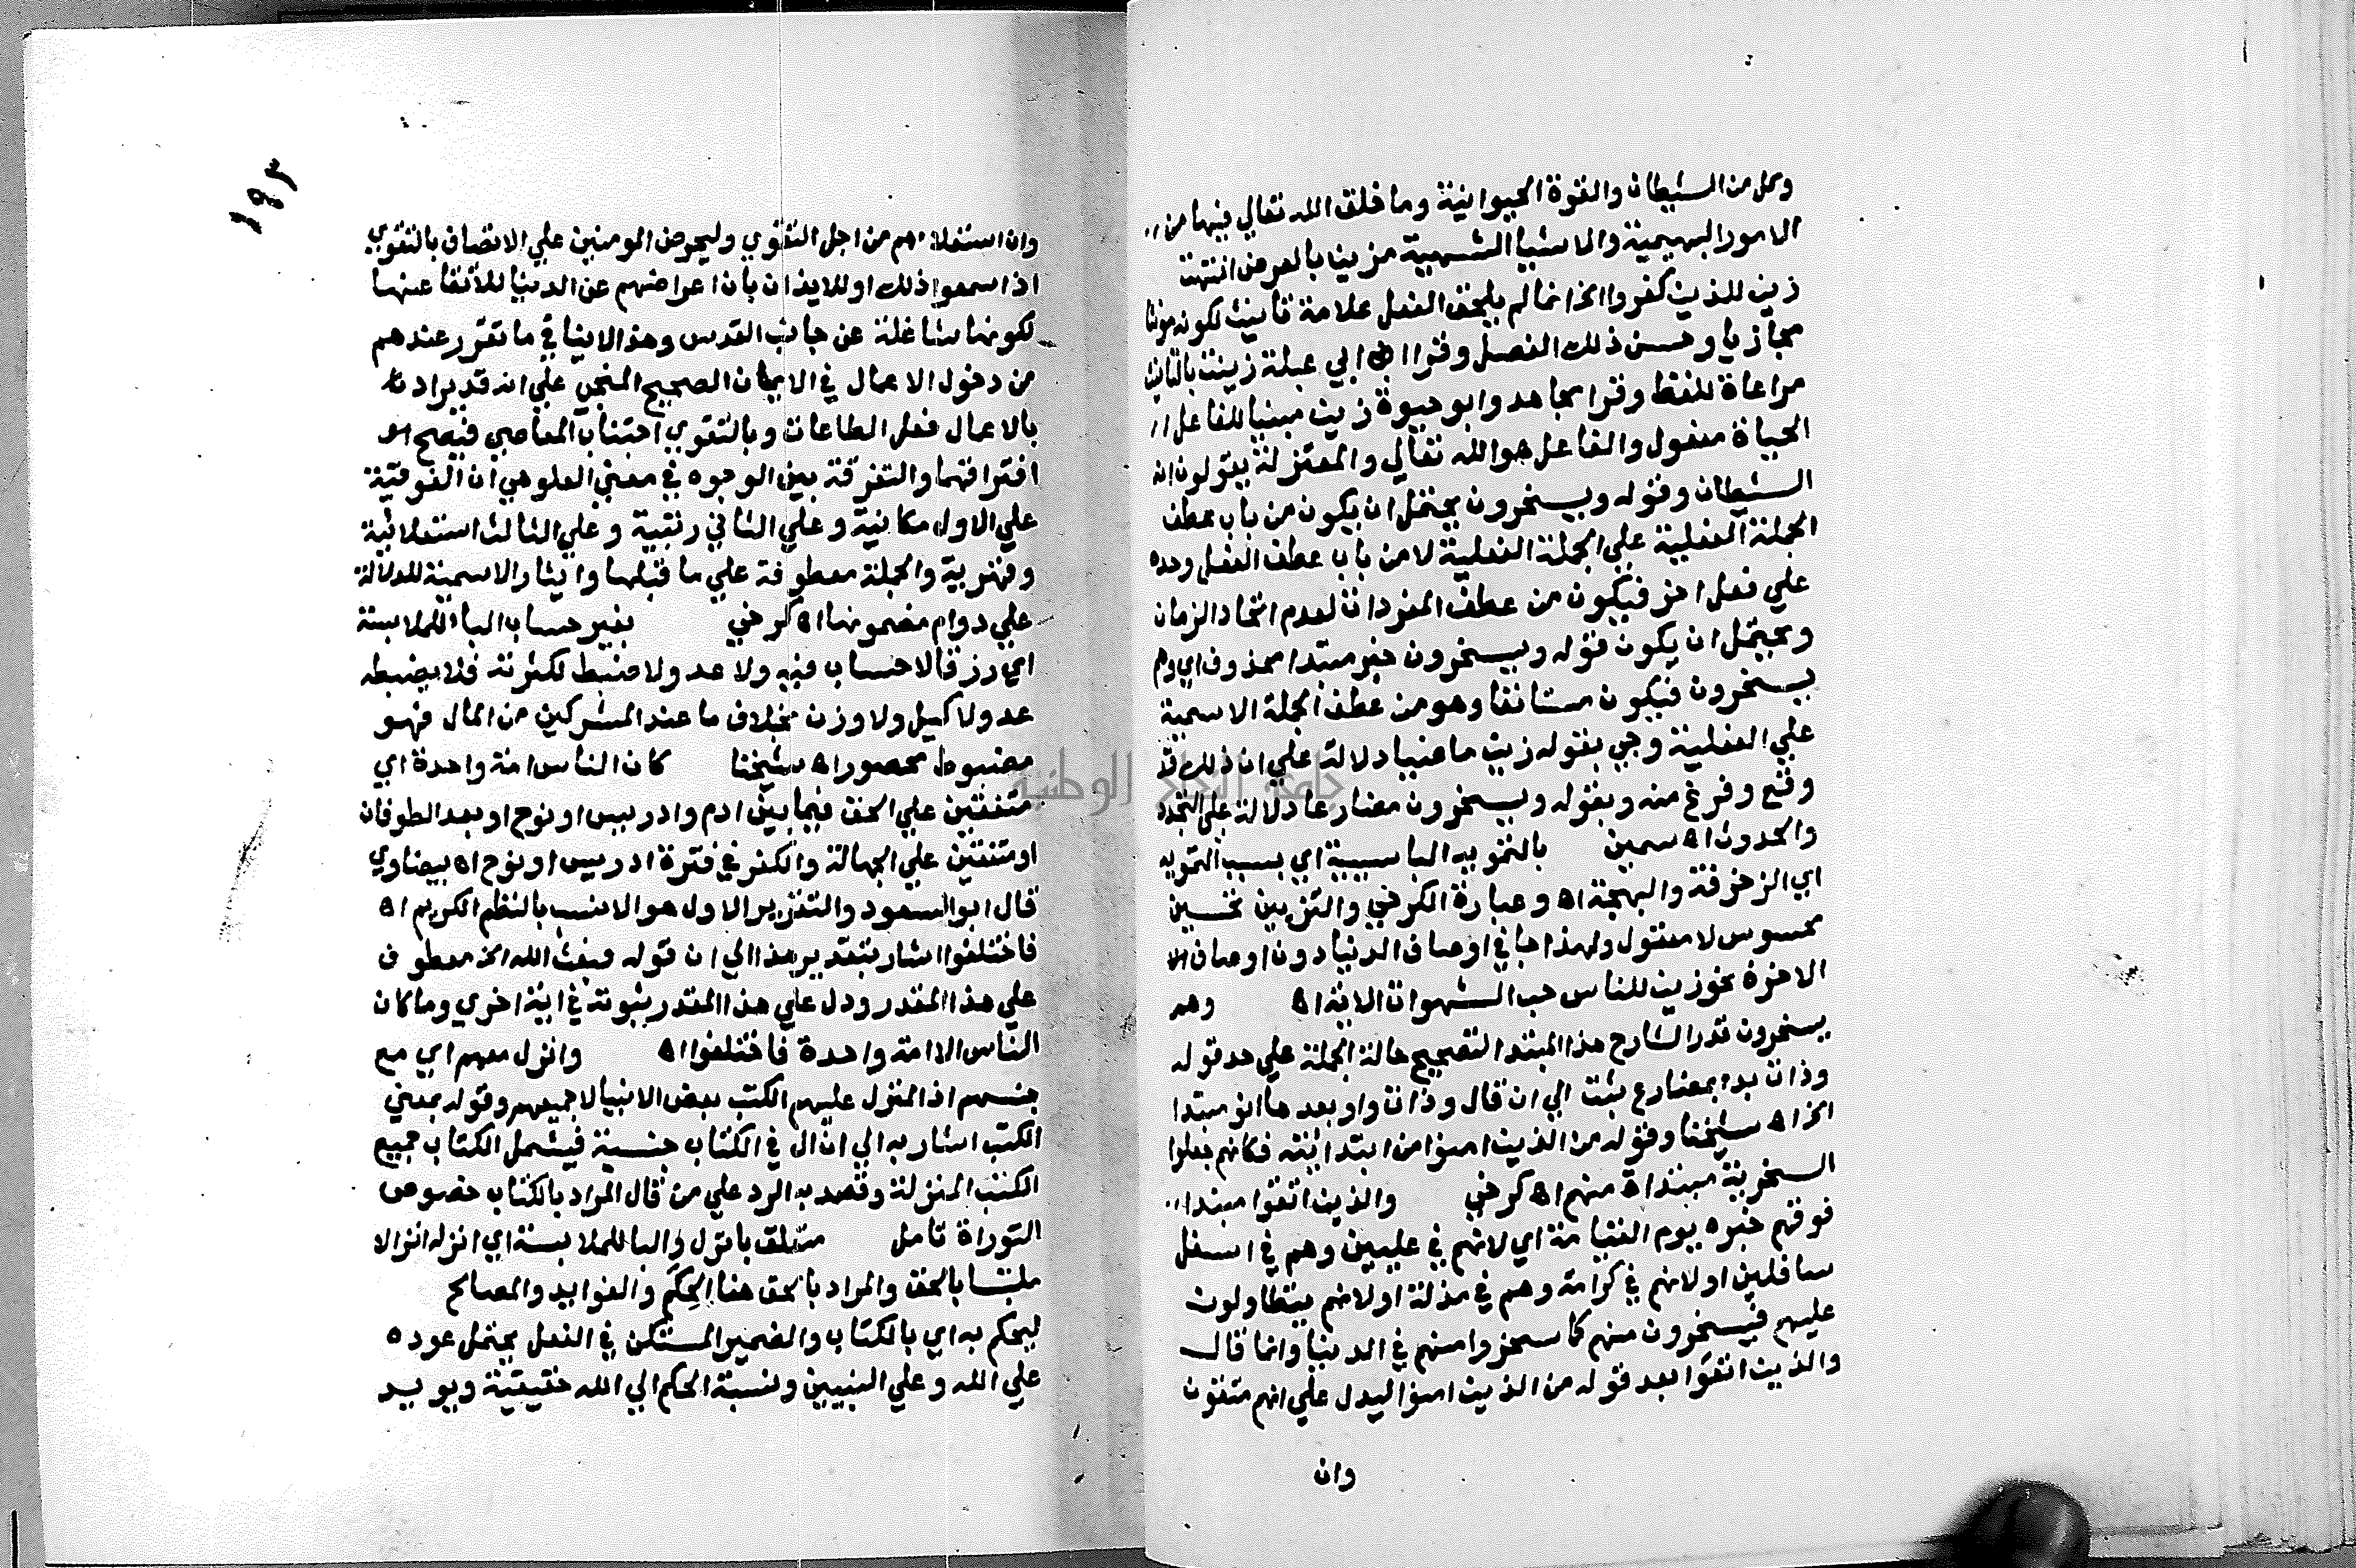 وكل من الشيطان والقوة الحيوانية وما خلق الله تعالي فيها من
الامور البهيمية والاشيا الشهية مزينا بالعرض انتهت
زين للذين كفروا الخ انما لم يلحق الفعل علامة تانيث لكونه مونثا
مجازيا وحسن ذلك الفصل وقرا ابن ابي عبلة زينت بالتانيث
مراعاة للفظ وقرا مجاهد وابو حيوة زين مبنيا للفاعل
الحياة مفعول والفاعل هو الله تعالي والمعتزلة يقولون انه
الشيطان وقوله ويسخرون يحتمل ان يكون من باب عطف
الجملة الفعلية علي الجملة الفعلية لا من باب عطف الفعل وحده
علي فعل اخر فيكون من عطف المفردات لعدم اتحاد الزمان
ويحتمل ان يكون قوله ويسخرون خبر مبتدا محذوف اي وهم
يسخرون فيكون مستانفا وهو من عطف الجملة الاسمية
علي الفعلية وجي بقوله زين ماضيا دلالة علي ان ذلك قد
وقع وفرغ منه وبقوله ويسخرون مضارعا دلالة علي التجدد
والحدوث اه سمين بالتمويه البا سببية اي بسبب التمويه
اي الزخرفة والبهجة اه وعبارة الكرخي والتزيين تحسين
محسوس لا معقول ولهذا جا في اوصاف الدنيا دون اوصاف
الاخرة نحو زين للناس حب الشهوات الاية اه وهم
يسخرون قدر الشارح هذا المبتدا لتصحيح حالة الجملة علي حد قوله
وذات بدء بمضارع ثبت الي ان قال وذات واو بعدها انو مبتدا
الخ اه شيخنا وقوله من الذين امنوا من ابتدائية فكانهم جعلوا
السخرية مبتداة منهم اه كرخي والذين اتقوا مبتدا
فوقهم خبره يوم القيامة اي لانهم في عليين وهم في اسفل
سافلين او لانهم في كرامة وهم في مذلة او لانهم يتطاولون
عليهم فيسخرون منهم كما سخروا منهم في الدنيا وانما قال
والذين اتقوا بعد قوله من الذين امنوا ليدل علي انهم متقون
وان
١٩٣
وان استعلاءهم من اجل التقوي وليحرض المومنين علي الاتصاف بالتقوي
اذا سمعوا ذلك او للايذان بان اعراضهم عن الدنيا للاتقا عنها
لكونها شاغلة عن جانب القدس وهذا لا ينافي ما تقرر عندهم
من دخول الاعمال في الايمان الصحيح المنجي علي انه قد يراد
بالاعمال فعل الطاعات وبالتقوي اجتناب المعاصي فيصح
افتراقهما والتفرقة بين الوجوه في معني العلو هي ان الفوقية
علي الاول مكانية وعلي الثاني رتبية وعلي الثالث استعلائية
وقهرية والجملة معطوفة علي ما قبلها وايثار الاسمية للدلالة
علي دوام مضمونها اه كرخي بغير حساب البا للملابسة
اي رزقا لا حساب فيه ولا عد ولا ضبط لكثرته فلا يضبطه
عد ولا كيل ولا وزن بخلاف ما عند المشركين من المال فهو
مضبوط محصور اه شيخنا كان الناس امة واحدة اي
متفقين علي الحق فيما بين ادم وادريس او نوح او بعد الطوفان
او متفقين علي الجهالة والكفر في فترة ادريس او نوح اه بيضاوي
قال ابو السعود والتقرير الاول هو الانسب بالنظم الكريم اه
فاختلفوا اشار بتقدير هذا الي ان قوله فبعث الله الخ معطوف
علي هذا المقدر ودل علي هذا المقدر ثبوته في اية اخري وما كان
الناس الا امة واحدة فاختلفوا اه وانزل معهم اي مع
جنسهم اذ المنزل عليهم الكتب بعض الانبيا لا جميعهم وقوله بمعني
الكتب اشار به الي ان ال في الكتاب جنسية فيشمل الكتاب جميع
الكتب المنزلة وقصد به الرد علي من قال المراد بالكتاب خصوص
التوراة تامل متعلق بانزل والبا للملابسة اي انزله انزالا
ملتبسا بالحق والمراد بالحق هنا الحِكَم والفوايد والمصالح
ليحكم به اي بالكتاب والضمير المستكن في الفعل يحتمل عوده
علي الله وعلي النبيين ونسبة الحكم الي الله حقيقية ويويد
جامعة النجاح الوطنية